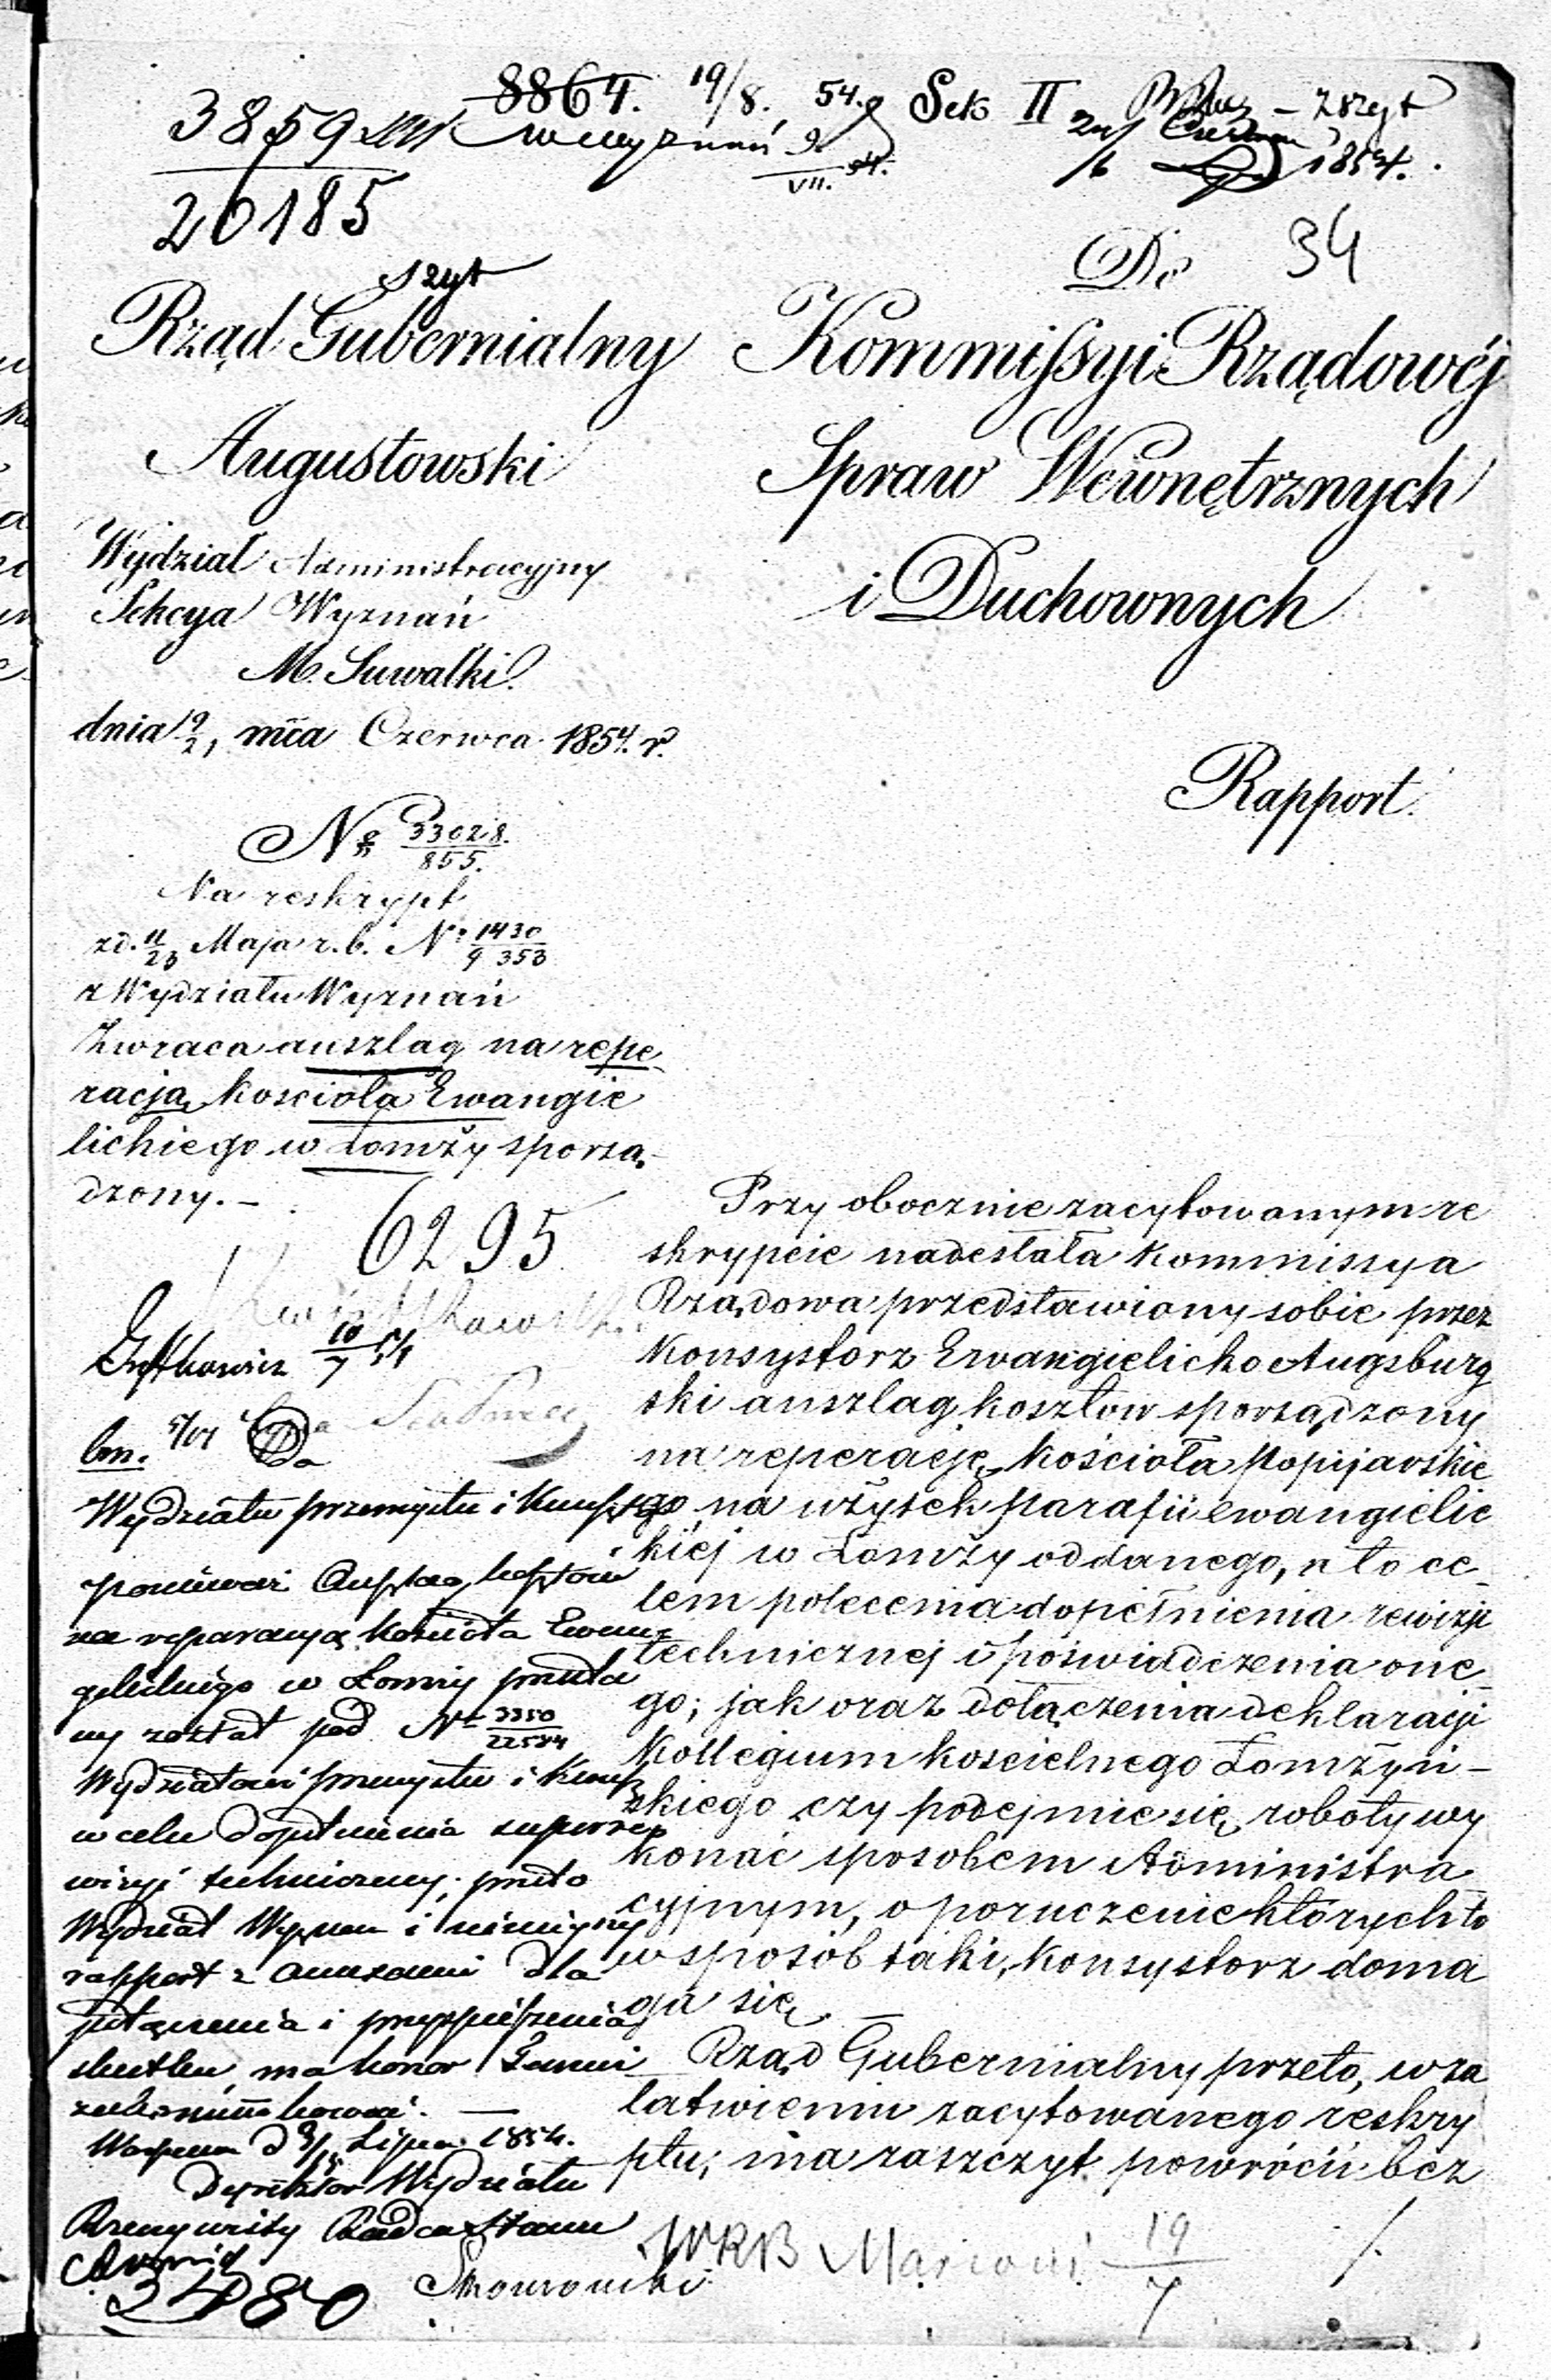 8864. 19/8. 54. Sek II
3859
20185
wyznań 9/VII. 54.
1854.
34
szyt
Rząd Gubernialny
Augustowski
Wydział Administracyjny
Sekcya Wyznań
M. Suwałki.
dnia 9/21 mca Czerwca 1854. r.
No 33028./855.
Na reskrypt
z d. 11/23 Maja r. b. No 1430/9353
z Wydziału Wyznań
Zwraca anszlag na repe-
racją kościoła Ewangie
lickiego w Łomży sporzą-
dzony. —
6295
10/7 54
Do
Wydziału przemysłu i Kunszt
ponieważ Anszlag kosztów
na reparacyą Kościoła Ewan-
gelickiego w Łomży przesła
ny został pod No 3350/22584
Wydziałowi przemysłu i Kunszt
w celu dopełnienia superre-
wizyi technicznej; przeto
Wydział Wyznań i niniejszy
rapport z anexami dla
połączenia i przyspieszenia
skutku, ma honor Temuż
zakommunikować. —
Lipca 1854.
Dyrektor Wydziału
Rzeczywisty Radca Stanu
3480
Do
Kommissyi Rządowéj
Spraw Wewnętrznych
i Duchownych
Rapport.
Przy obocznie zacytowanym re
skrypcie nadesłała Kommissya
Rządowa przedstawiony sobie przez
Konsystorz Ewangielicko Augsburg
ski anszlag kosztow sporządzony
na reperację kościoła popijarskie
go na użytek parafii ewangielic
kiej w Łomży oddanego, a to ce-
lem polecenia dopełnienia rewizji
technicznej i poświadczenia one-
go; jak oraz dołączenia deklaracji
Kollegium kościelnego Łomżyń-
skiego czy podejmie się roboty wy
konać sposobem Administra
cyjnym, o poruczenie których to
w sposób taki, Konsystorz doma
ga się. —
Rząd Gubernialny przeto, w za
łatwieniu zacytowanego reskry
ptu; ma zaszczyt powrócić bez
19/7